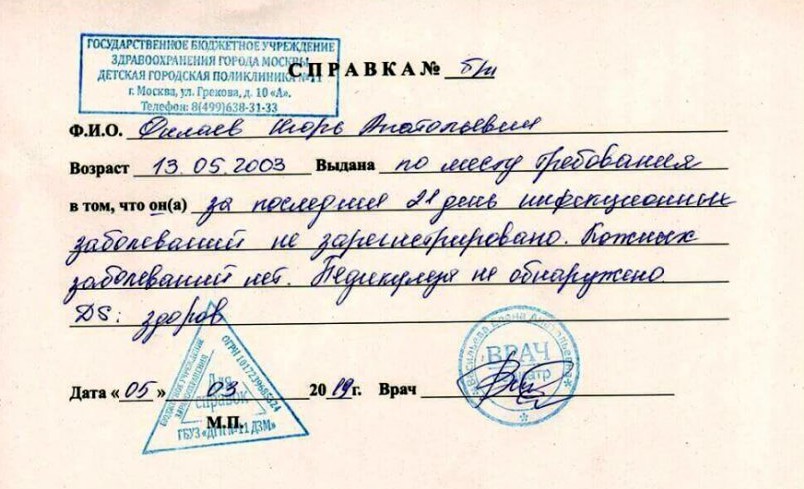 ГОСУДАРСТВЕННОЕ БЮДЖЕТНОЕ УЧРЕЖДЕНИЕ
ЗДРАВООХРАНЕНИЯ ГОРОДА МОСКВЫ
ДЕТСКАЯ ГОРОДСКАЯ ПОЛИКЛИНИКА №11
г. Москва, ул. Грекова, д. 10 «А».
Телефон: 8(499)638-31-33
СПРАВКА № б/н
Ф.И.О. Филаев Игорь Анатольевич
Возраст 13.05.2003 Выдана по месту требования
в том, что он(а) за последний 21 день инфекционных
заболеваний не зарегистрировано. Кожных
заболеваний нет. Педикулеза не обнаружено.
DS: здоров
Дата «05» 03 2019г. Врач
М.П.
БЮДЖЕТНОЕ УЧРЕЖДЕНИЕ
ЗДРАВООХРАНЕНИЯ
Для
справок
ГБУЗ «ДГП №11 ДЗМ»
Елена Анатольевна
ВРАЧ